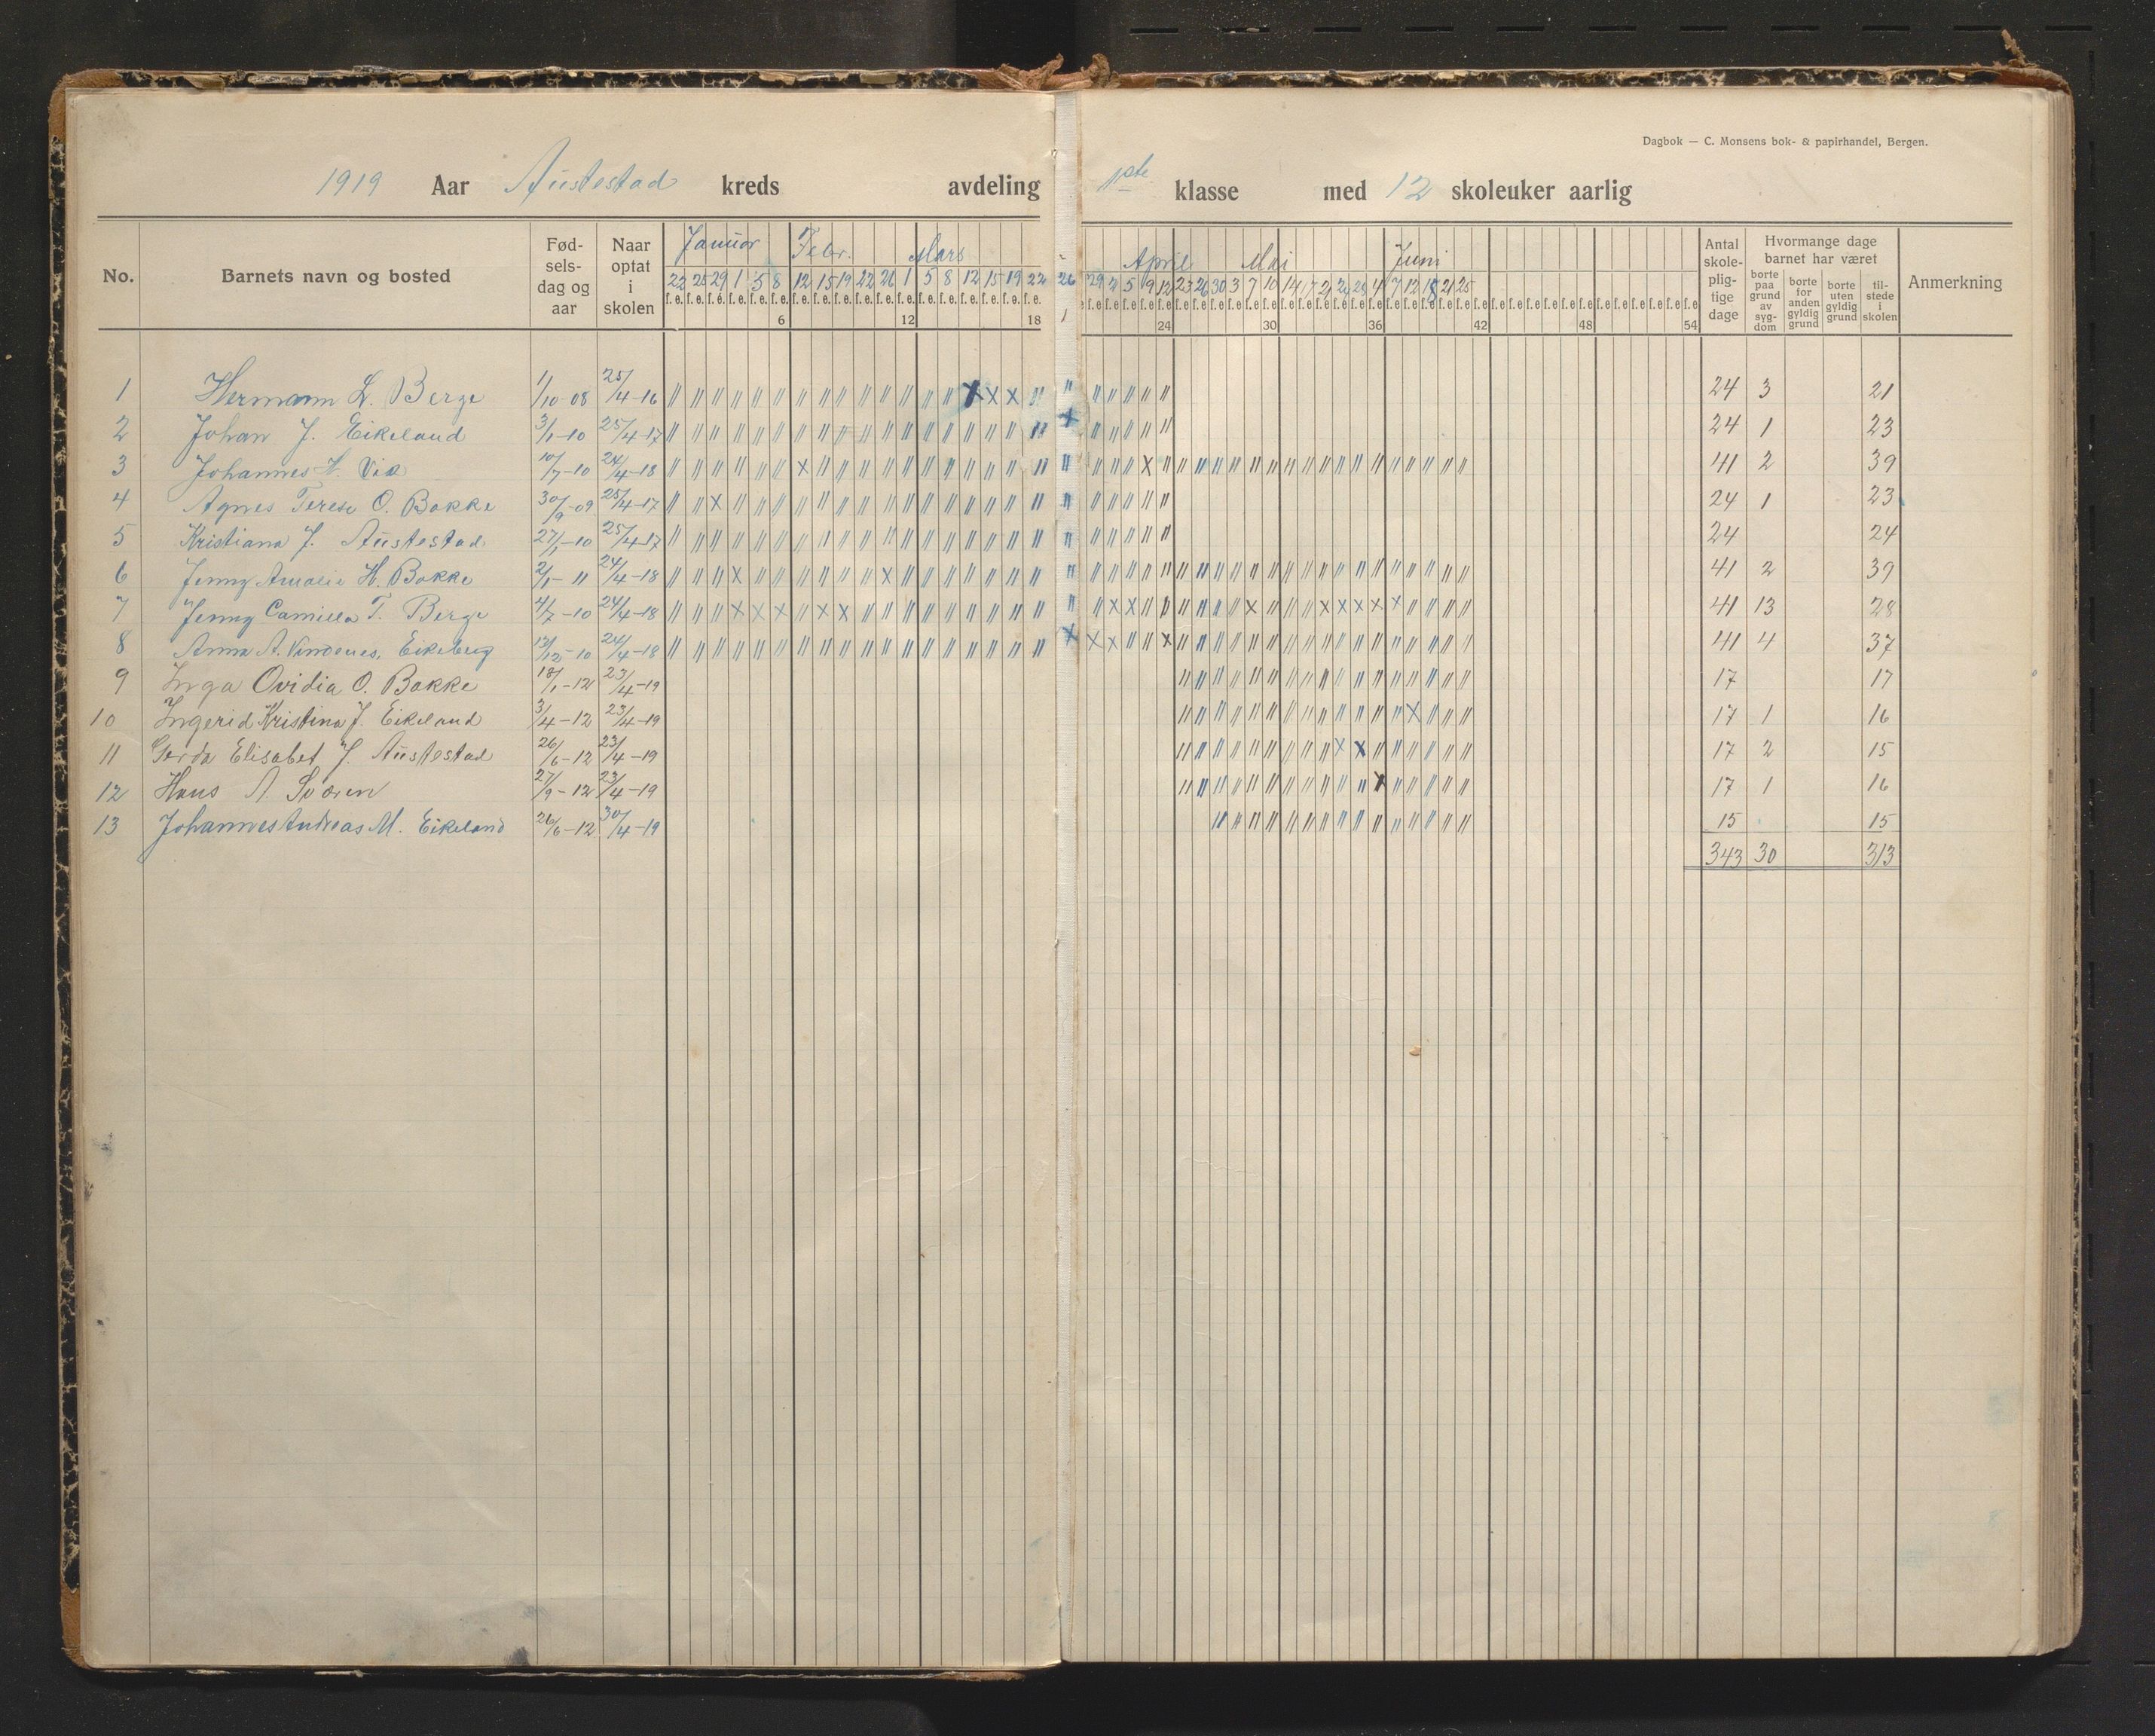 Dagbok — C. Monsens bok- & papirhandel, Bergen.
1919 Aar Austestad kreds avdeling 1ste klasse med 12 skoleuker aarlig
No. Barnets navn og bosted Fødselsdag og aar Naar optat i skolen Januar Febr. Mars April Mai Juni Antal skolepligtige dage Hvormange dage barnet har været Anmerkning
borte paa grund av sygdom borte for anden gyldig grund borte uten gyldig grund tilstede i skolen
22 25 29 1 5 8 12 15 19 22 26 1 5 8 12 15 19 22 26 29 2 5 9 12 23 26 30 3 7 10 14 17 21 24 28 4 7 12 18 21 25
6 12 18 1 24 30 36 42 48 54
1 Hermann L. Berge 1/10-08 25/4-16 24 3 21
2 Johan J. Eikeland 3/1-10 25/4-17 24 1 23
3 Johannes H. Vik 10/7-10 24/4-18 41 2 39
4 Agnes Terese O. Bakke 30/9-09 25/4-17 24 1 23
5 Kristiana J. Austestad 27/1-10 25/4-17 24 24
6 Jenny Amalie H. Bakke 2/1-11 24/4-18 41 2 39
7 Jenny Camilla T. Berge 4/7-10 24/4-18 41 13 28
8 Anna A. Vindenes, Eikeberg 13/12-10 24/4-18 41 4 37
9 Inga Ovidia O. Bakke 18/1-12 23/4-19 17 17
10 Ingerid Kristina J. Eikeland 3/4-12 23/4-19 17 1 16
11 Gerda Elisabet J. Austestad 26/6-12 23/4-19 17 2 15
12 Hans A. Sværen 27/9-12 23/4-19 17 1 16
13 Johannes Andreas M. Eikeland 26/6-12 30/4-19 15 15
343 30 313